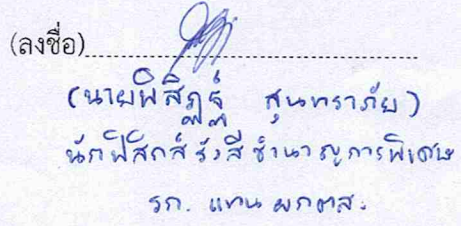 (ลงชื่อ)
(นายพิสิฏฐ์ สุนทราภัย)
นักฟิสิกส์รังสีชำนาญการพิเศษ
รก. แทน ผกตส.